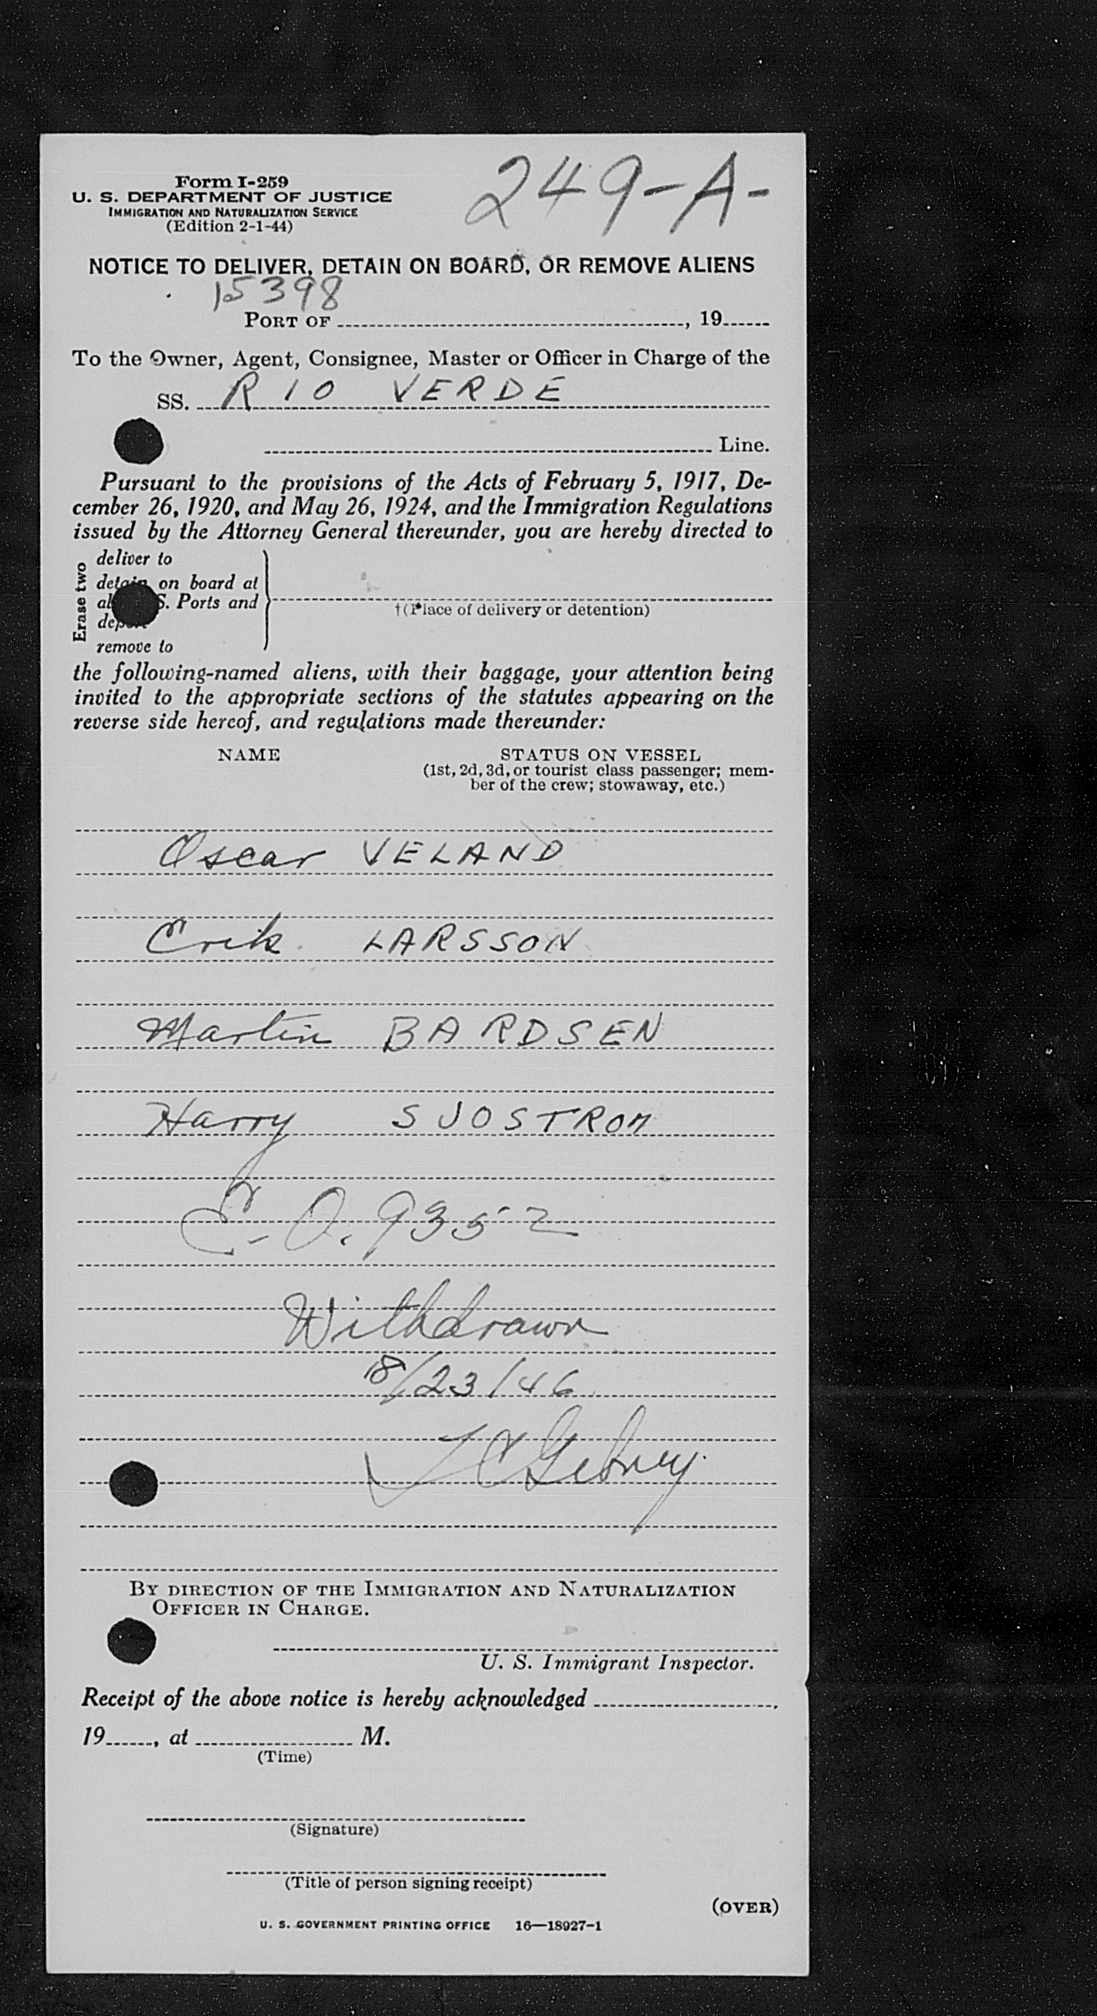 249-A-
Form I-259
U. S. DEPARTMENT OF JUSTICE
IMMIGRATION AND NATURALIZATION SERVICE
(Edition 2-1-44)
NOTICE TO DELIVER, DETAIN ON BOARD, OR REMOVE ALIENS
15398
PORT OF , 19
To the Owner, Agent, Consignee, Master or Officer in Charge of the
SS. RIO VERDE
Line.
Pursuant to the provisions of the Acts of February 5, 1917, De-
cember 26, 1920, and May 26, 1924, and the Immigration Regulations
issued by the Attorney General thereunder, you are hereby directed to
Erase two
deliver to
detain on board at
S. Ports and
remove to
†(Place of delivery or detention)
the following-named aliens, with their baggage, your attention being
invited to the appropriate sections of the statutes appearing on the
reverse side hereof, and regulations made thereunder:
NAME STATUS ON VESSEL
(1st, 2d, 3d, or tourist class passenger; mem-
ber of the crew; stowaway, etc.)
Oscar VELAND
Erik LARSSON
Martin BARDSEN
Harry SJOSTROM
E.O. 9352
Withdrawn
8/23/46
BY DIRECTION OF THE IMMIGRATION AND NATURALIZATION
OFFICER IN CHARGE.
U. S. Immigrant Inspector.
Receipt of the above notice is hereby acknowledged ,
19 , at M.
(Time)
(Signature)
(Title of person signing receipt)
(OVER)
U. S. GOVERNMENT PRINTING OFFICE 16—18927-1